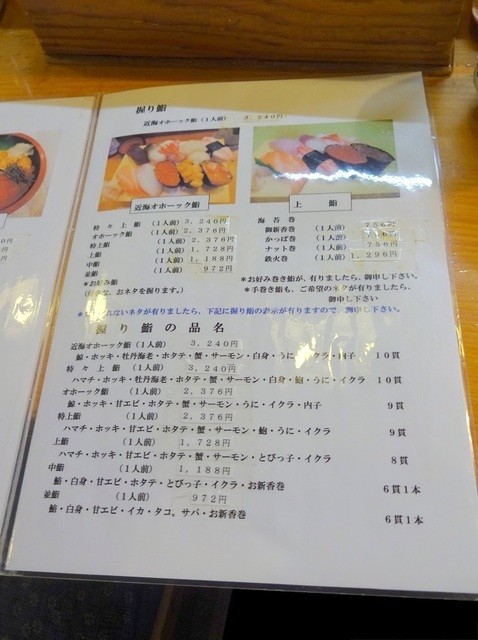 握り鮨
近海オホーック鮨（1人前） 3,240円
近海オホーック鮨
上 鮨
特々上 鮨 （1人前） 3,240円
オホーック鮨 （1人前） 2,376円
特上鮨 （1人前） 2,376円
上鮨 （1人前） 1,728円
中鮨 （1人前） 1,188円
並鮨 （1人前） 972円
＊お好み鮨
おネタを握ります。）
海苔巻 （1人前） 756円
御新香巻 （1人前）
かっぱ巻 （1人前）
ナット巻 （1人前） 756円
鉄火巻 （1人前） 1,296円
＊お好み巻き鮨が、有りましたら、御申し下さい。
＊手巻き鮨も、ご希望のネタが有りましたら、
御申し下さい
れないネタが有りましたら、下記に握り鮨の表示が有りますので 御申し下さい。
握り 鮨の品名
近海オホーック鮨（1人前） 3,240円
鯨・ホッキ・牡丹海老・ホタテ・蟹・サーモン・白身・うに・イクラ・内子 10貫
特々上 鮨 （1人前） 3,240円
ハマチ・ホッキ・牡丹海老・ホタテ・蟹・サーモン・白身・鮑・うに・イクラ 10貫
オホーック鮨 （1人前） 2,376円
鯨・ホッキ・甘エビ・ホタテ・蟹・サーモン・うに・イクラ・内子 9貫
特上鮨 （1人前） 2,376円
ハマチ・ホッキ・甘エビ・ホタテ・蟹・サーモン・鮑・うに・イクラ 9貫
上鮨 （1人前） 1,728円
ハマチ・ホッキ・甘エビ・ホタテ・蟹・サーモン・とびっ子・イクラ 8貫
中鮨 （1人前） 1,188円
鮪・白身・甘エビ・ホタテ・とびっ子・イクラ・お新香巻 6貫1本
並鮨 （1人前） 972円
鮪・白身・甘エビ・イカ・タコ。サバ・お新香巻 6貫1本